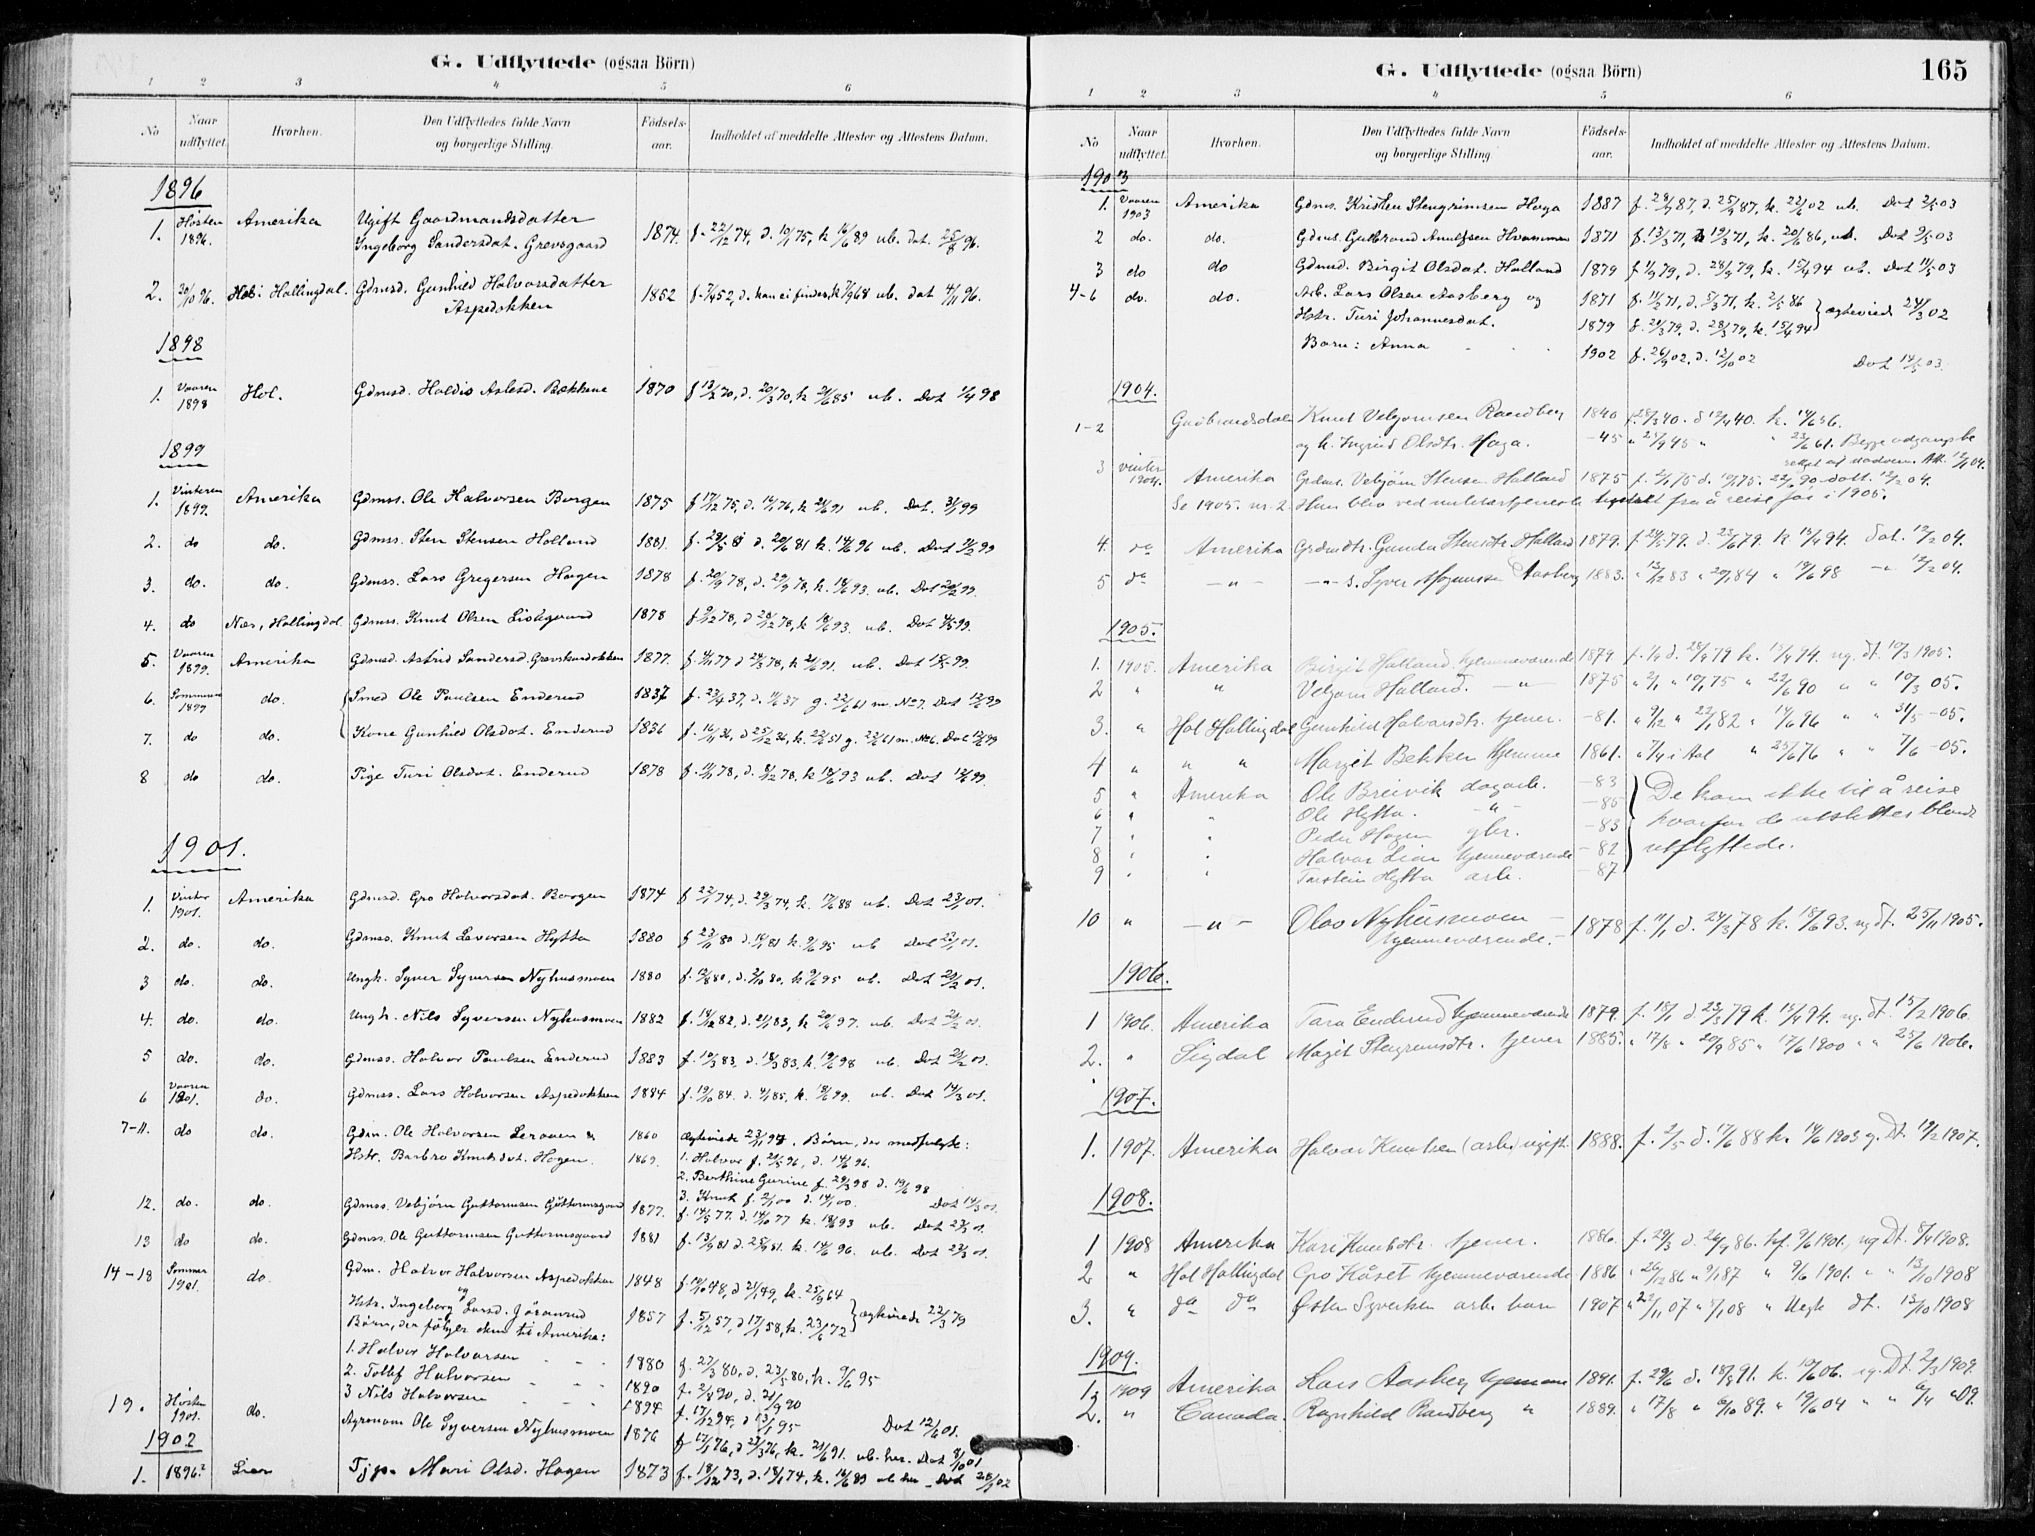 G. Udflyttede (ogsaa Börn)
1 2 3 4 5 6
No Naar udflyttet. Hvorhen. Den Udflyttedes fulde Navn og borgerlige Stilling. Födsels-aar. Indholdet af meddelte Attester og Attestens Datum.
1896
1. Høsten 1896. Amerika Ugift Gaardmandsdatter
Ingeborg Sandersdat. Grøvsgaard 1874. f. 22/12 74, d. 10/1 75, k. 16/6 89 ub. dat. 25/8 96.
2. 30/10 96. Hol i Hallingdal. Gdmsd. Gunhild Halvorsdatter
Aspedokken 1852 f. 7/4 52, d. kan ei findes, k. 7/9 68 ub. dat 4/11 96.
1898
1. Vaaren 1898 Hol. Gdmsd. Haldis Aslesd. Bækkene 1870 f 13/2 70, d. 20/3 70, k 21/6 85 ub. Dat 1/4 98
1899
1. Vinteren 1899. Amerika Gdmss. Ole Halvorsen Borgen 1875 f 17/12 75, d. 16/1 76, k 21/6 91 ub. Dat. 31/1 99
2. do do. Gdmss. Sten Stensen Holland 1881. f. 29/5 81 d. 20/6 81 k. 14/6 96 ub. Dat 11/2 99
3. do. do. Gdmss. Lars Gregersen Hagen 1878 f. 20/9 78, d. 29/9 78, k. 18/6 93. ub. Dat 20/2 99.
4. do Næs, Hallingdal. Gdmss. Knut Olsen Lislegaard 1878 f 9/12 78, d 26/12 78, k 18/6 93. ub. Dat 4/5 99.
5. Vaaren 1899. Amerika Gdmsd. Astrid Sandersd. Grøvskardokken 1877. f. 11/11 77 d 24/3 78, k 21/6 91. ub. Dat 18/5 99.
6. Sommeren 1899 do. Smed Ole Paulsen Enderud 1837 f. 23/4 37, d. 11/6 37 g. 22/6 61 m. No 7. Dat 12/6 99
7. do do. Kone Gunhild Olsdat. Enderud 1836 f. 16/11 36, d. 25/12 36, k. 22/6 51 g. 22/6 61 m. No 6. Dat 12/6 99
8 do do. Pige Turi Olsdat. Enderud 1878 f. 11/11 78, d. 8/12 78, k 18/6 93 ub. Dat 12/6 99.
1901.
1. Vinter 1901. Amerika Gdmsd. Gro Halvorsdat. Borgen 1874 f 22/1 74, d. 29/3 74, k. 17/6 88 ub. Dat 23/1 01.
2. do. do. Gdmss. Knut Levorsen Hytta 1880 f 23/11 80 d. 16/1 81 k. 9/6 95 ub Dat 23/1 01.
3 do. do. Ungk. Syver Syversen Nyhusmoen 1880 f. 12/8 80, d. 3/10 80, k 9/6 95 ub. Dat 20/2 01.
4. do. do. Ungk. Nils Syversen Nyhusmoen 1882 f. 14/12 82, d. 21/1 83, k 20/6 97. ub. Dat 20/2 01.
5 do. do. Gdmss. Halvor Paulsen Enderud 1883 f. 10/3 83, d. 18/3 83, k. 19/6 98 ub. Dat 21/2 01.
6 Vaaren 1901. do. Gdmss. Lars Halvorsen Aspedokken 1884 f. 19/10 84. d. 4/1 85, k. 18/6 99. ub. Dat 14/3 01.
7-11. do do. Gdm. Ole Halvorsen Leraaen & 1860 ægteviede 23/11 94. Børn, der medfølgte:
Hstr. Barbro Knutsdat. Hagen. 1869. 1. Halvor f. 20/5 96, d. 14/6 96.
2. Berthine Gurine f. 29/3 98 d. 19/6 98
3. Knut f. 2/1 00 d. 14/1 00. Dat 14/3 01.
12. do. do. Gdmss. Vebjørn Guttormsen Guttormsgaard 1877. f. 14/5 77. d. 14/10 77 k. 18/6 93 ub. Dat 23/3 01.
13 do do. Gdmss. Ole Guttormsen Guttormsgaard 1881 f. 13/9 81 d. 25/9 81. k. 14/6 96. ub. Dat 23/3 01.
14-18 Sommer 1901. do. Gdm. Halvor Halvorsen Aspedokken 1848 f 14/10 48, d 21/1 49, k. 25/9 64
og
Hstr. Ingeborg Larsd. Jøranrud 1857 f. 5/12 57, d 17/1 58, k. 23/6 72 ægteviede 22/3 79
Børn, der følger dem til Amerika:
1. Halvor Halvorsen 1880 f. 27/3 80, d. 23/5 80, k. 9/6 95
2. Tollef Halvorsen 1890 f. 2/8 90, d. 21/9 90
3 Nils Halvorsen 1894 f. 17/12 94, d 13/1 95 Dat 12/6 01.
19. Høsten 1901. do. Agronom Ole Syversen Nyhusmoen 1876 f 17/1 76, d 23/3 76, k. 21/6 91. ub. her. Dat 8/10 01
1902
1. 1896? Lier Tjp. Mari Olsd. Hagen 1873 f. 18/12 73, d. 18/1 74, k. 16/6 89 ub her. Dat 28/1 02
G. Udflyttede (ogsaa Börn) 165
1 2 3 4 5 6
No Naar udflyttet. Hvorhen. Den Udflyttedes fulde Navn og borgerlige Stilling Födsels-aar. Indholdet af meddelte Attester og Attestens Datum.
1903
1. Vaaren 1903 Amerika Gdms. Kristen Stengrimsen Haga 1887 f. 28/8 87, d. 25/9 87, k. 22/6 02 ub. Dat 2/5 03
2 do. do. Gdms. Gulbrand Arnulfsen Hvammen 1871 f. 13/3 71, d 19/3 71, k. 20/6 86, ub. Dat 9/5 03
3 do do Gdmsd. Birgit Olsdat. Holland 1879 f 11/4 79, d. 28/4 79, k. 15/4 94 ub. Dat 11/5 03
4-6 do. do. Arb. Lars Olsen Aasberg og 1871 f. 11/2 71, d. 5/3 71, k. 2/5 86 ægteviede 24/3 02
Hstr. Turi Johannesdat. 1879 f. 21/3 79, d. 28/3 79, k. 15/4 94
Barn: Anna 1902 f. 26/9 02, d. 12/10 02 Dat 14/5 03.
1904.
1-2 Gudbrandsdalen Knut Vebjørnsen Randberg 1840 f. 28/3 40. d 12/4 40. k. 14/6 56.
og k. Ingrid Olsdtr. Haga. -45 " 21/9 45 " " 23/6 61. Begge utgangsbe
3 vinter 1904. Amerika Grdms. Vebjørn Stensen Holland 1875 f. 2/1 75 d. 10/1 75. 22/6 90 datt. 12/2 04.
Se 1905. nr. 2. Han blev ved militærtjeneste hindret fra å reise før i 1905.
4. do Amerika Grdmdtr. Gunda Stensdtr. Holland 1879. f. 24/5 79. d. 22/6 79. k. 15/4 94. dat. 12/2 04.
5 do -"- -"- s. Syver Mogensen Aasberg 1883. " 12/12 83 " 20/1 84 " 19/6 98 -" 12/2 04.
1905.
1. 1905. Amerika Birgit Holland. hjemmeværende 1879. f. 1/4 d. 28/4 79 k. 15/4 94. ug. dt. 10/3 1905.
2 " " Vebjørn Holland. -"- 1875 " 2/1 " 10/1 75 " 22/6 90 " " 10/3 05.
3. " Hol Hallingdal Gunhild Halvorsdtr. tjener. -81. " 9/12 " 22/1 82 " 14/6 96 " " 31/5 -05.
4 " " " Margit Bekken hjemme 1861. " 7/4 i Aal " 25/6 76 " " 7/6 -05.
5 " Amerika Ole Breivik dagarb. -83 De kom ikke til å reise
6 " " Ole Hytta. -"- -85 hvorfor de utslettes blandt
7 " " Peder Hagen gbr. -83 utflyttede.
8 " " Halvor Lien hjemmeværende -82
9 " " Torstein Hytta arb. -87
10 " -"- Olav Nyhusmoen
hjemmeværende. 1878 f. 11/1 d. 24/3 78 k. 18/6 93. ug dt. 25/11 1905.
1906.
1 1906. Amerika Tara Enderud hjemmeværende 1879. f. 18/1 d 23/3 79 k. 15/4 94. ug. dt. 15/2 1906.
2. " Sigdal Magit Stengrimsdtr. tjener 1885. " 17/8 " 20/9 85 " 17/6 1900 " " 25/6 1906.
1907.
1. 1907. Amerika Halvor Knutsen (arb.) ugift 1888. f. 2/5 d. 17/6 88 k. 14/6 1903 g. Dt. 19/2 1907.
1908.
1 1908 Amerika Kari Knutsdtr. tjener. 1886. f. 29/3 d. 26/4 86. kf. 9/6 1901, ug Dt. 8/4 1908.
2 " Hol Hallingdal Gro Kaaset hjemmeværende 1886 " 26/12 86 " 9/1 87 " 9/6 1901. " " 13/10 1908
3. " do do Østen Syversen arb. barn 1907 " 22/11 07 " 5/1 08 " Uegte dt. 13/10 1908
1909.
1. 1909 Amerika Lars Aasberg hjemme 1891. f. 29/6 d. 18/8 91. k. 10/6 06. ug. Dt. 2/3 1909.
2. " Canada. Ragnhild Randberg " 1889. " 17/8 " 6/10 89. " 19/6 04 " " 6/4 " 09.